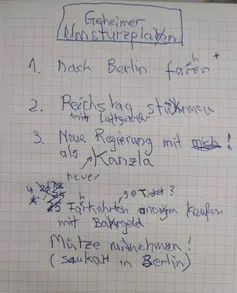 Geheimer
Umsturzplahn
1. nach Berlin faren
h
2. Reichstag stürmen
mit Luftgewehr
3. Neue Regierung mit mich!
als Kanzla
neuer
4.
Farkahrten anonym kaufen
mit Bahrgeld
Mütze mitnehmen!
(saukalt in Berlin)